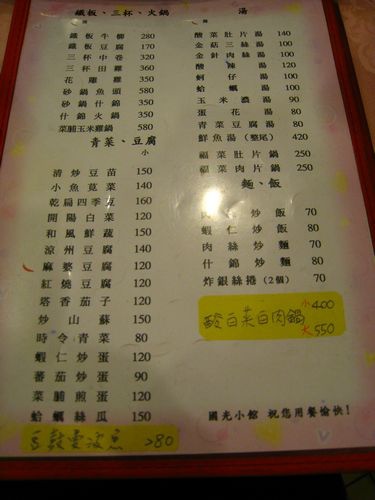 鐵板、三杯、火鍋
鐵板牛柳 280
鐵板豆腐 170
三杯中卷 320
三杯田雞 360
花雕雞 350
砂鍋魚頭 580
砂鍋什錦 350
什錦火鍋 350
菜脯玉米雞鍋 580
青菜、豆腐
小
清炒豆苗 150
小魚莧菜 140
乾扁四季豆 160
開陽白菜 120
和風鮮蔬 150
涼州豆腐 140
麻婆豆腐 120
紅燒豆腐 120
塔香茄子 120
炒山蘇 150
時令青菜 80
蝦仁炒蛋 120
蕃茄炒蛋 90
菜脯煎蛋 90
蛤蠣絲瓜 150
豆鼓雪波魚 280
湯
酸菜肚片湯 140
金菇三絲湯 100
金針肉絲湯 100
酸辣湯 120
蚵仔湯 100
蛤蠣湯 100
玉米濃湯 90
蛋花湯 80
青菜豆腐湯 80
鮮魚湯(整尾) 420
福菜肚片鍋 250
福菜肉片鍋 250
麵、飯
炒飯 70
蝦仁炒飯 80
肉絲炒麵 70
什錦炒麵 80
炸銀絲捲(2個) 70
酸白菜白肉鍋 小400
大550
國光小館 祝您用餐愉快!